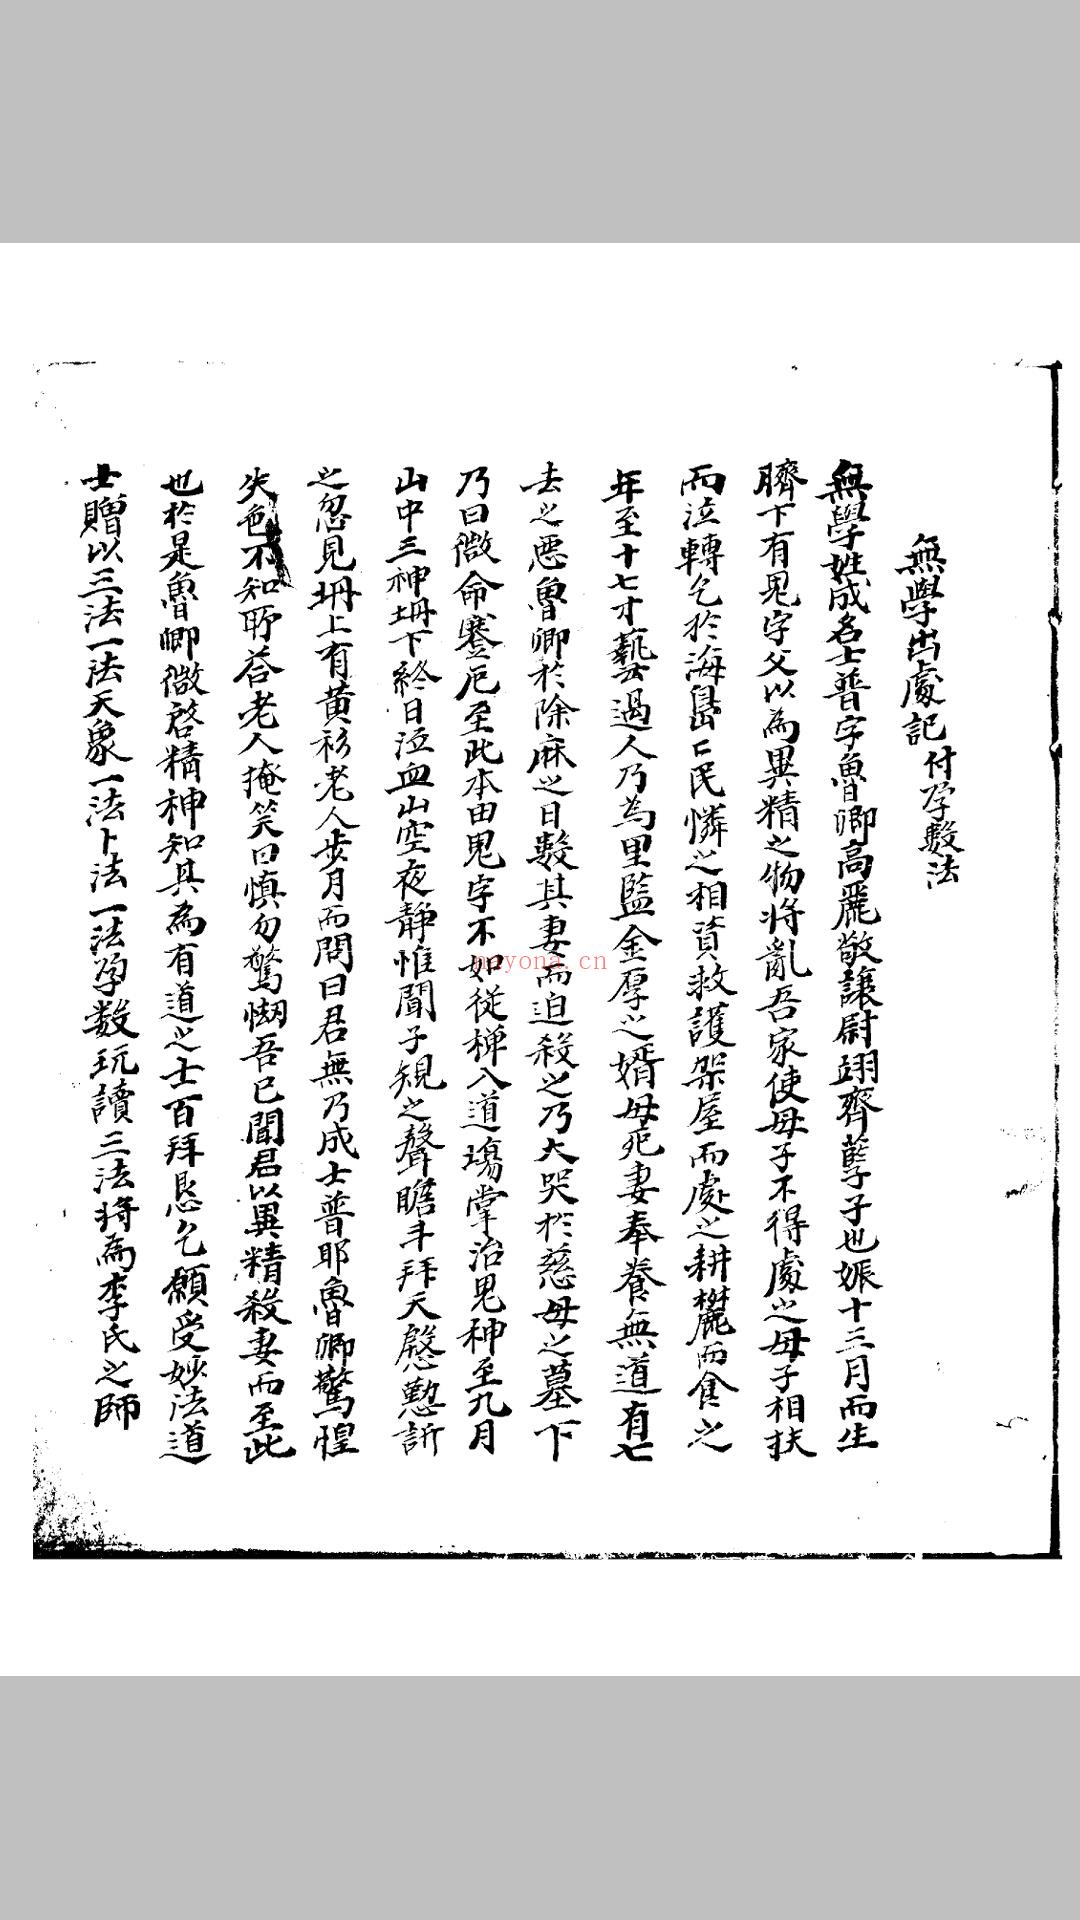 無學出處記 付孕數法
無學姓成名士普字魯卿高麗敬讓尉翊齊孽子也娠十三月而生
臍下有鬼字父以為異精之物將亂吾家使母子不得處之母子相扶
而泣轉乞於海島〻民憐之相資救護架屋而處之耕𣟄而食之
年至十七才藝過人乃為里監金厚之婿母死妻奉養無道有七
去之惡魯卿於除麻之日數其妻而迫殺之乃大哭於慈母之墓下
乃曰微命蹇厄至此本由鬼字不如從禅入道場掌治鬼神至九月
山中三神坍下終日泣血山空夜靜惟聞子規之聲瞻斗拜天慇懃訴
之忽見坍上有黄衫老人步月而問曰君無乃成士普耶魯卿驚惶
失色不知所答老人掩笑曰慎勿驚惚吾已聞君以異精殺妻而至此
也於是魯卿微啓精神知其為有道之士百拜恳乞願受妙法道
士贈以三法一法天象一法卜法一法孕数玩讀三法将為李氏之師
nayona.cn